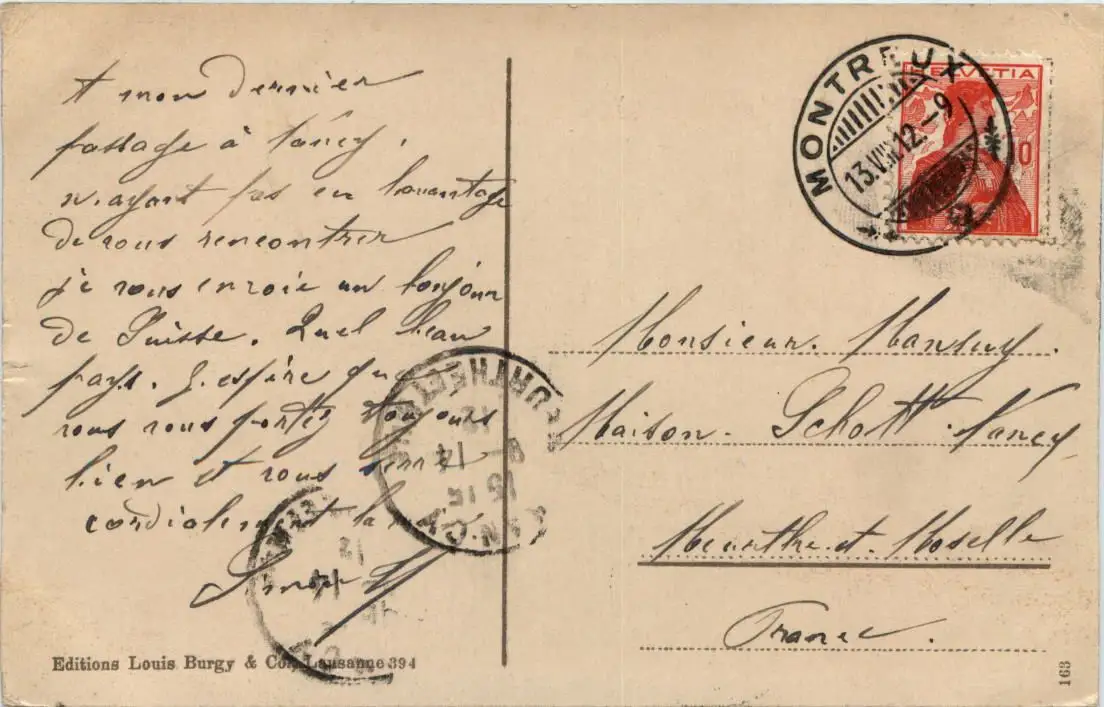 A mon Dernier
passage à Nancy,
n'ayant pas eu l'avantage
de vous rencontrer
je vous envoie un bonjour
de Suisse. Quel beau
pays. J'espère que
vous vous portez toujours
bien et vous serre
cordialement la main
Editions Louis Burgy & Co., Lausanne 394
MONTREUX
13.VIII.12.-9
HELVETIA
10
Monsieur. Mansuy.
Maison. Schott. Nancy
Meurthe et Moselle
France.
163
NANCY
MEURTHE ET M
15 15
14 - 8
12